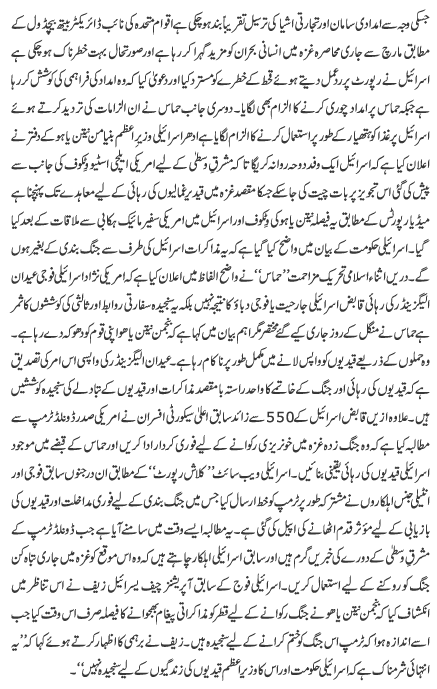 جسکی وجہ سے امدادی سامان اور تجارتی اشیا کی ترسیل تقریباً بند ہوچکی ہے اقوام متحدہ کی نائب ڈائریکٹر بیتھ بیچڈول کے
مطابق مارچ سے جاری محاصرہ غزہ میں انسانی بحران کو مزید گہرا کر رہا ہے اور صورتحال بہت خطرناک ہوچکی ہے
اسرائیل نے رپورٹ پر ردعمل دیتے ہوئے قحط کے خطرے کو مسترد کیا اور دعویٰ کیا کہ وہ امداد کی فراہمی کی کوشش کر رہا
ہے جبکہ حماس پر امداد چوری کرنے کا الزام بھی لگایا۔ دوسری جانب حماس نے ان الزامات کی تردید کی اور
اسرائیل پر غذا کو ہتھیار کے طور پر استعمال کرنے کا الزام لگایا ہے ادھر اسرائیلی وزیر اعظم بنیامن نیتن یاہو کے دفتر نے
اعلان کیا ہے کہ اسرائیل ایک وفد دوحہ روانہ کریگا تاکہ مشرق وسطیٰ کے لیے امریکی ایلچی اسٹیو وٹکوف کی جانب سے
پیش کی گئی اس تجویز پر بات چیت کی جاسکے جسکا مقصد غزہ میں قید یرغمالیوں کی رہائی کے لیے معاہدے تک پہنچنا ہے
میڈیا رپورٹس کے مطابق یہ فیصلہ نیتن یاہو کی وٹکوف اور اسرائیل میں امریکی سفیر مائیک ہکابی سے ملاقات کے بعد کیا
گیا۔ اسرائیلی حکومت کے بیان میں واضح کیا گیا ہے کہ یہ مذاکرات اسرائیل کی طرف سے جنگ بندی کے بغیر ہوں
گے۔ دریں اثناء اسلامی تحریک مزاحمت ’’حماس‘‘ نے واضح الفاظ میں اعلان کیا ہے کہ امریکی نژاد اسرائیلی فوجی عیدان
الیگزینڈر کی رہائی قابض اسرائیلی جارحیت یا فوجی دباؤ کا نتیجہ نہیں بلکہ یہ سنجیدہ سفارتی روابط اور ثالثی کی کوششوں کا ثمر
ہے حماس نے منگل کے روز جاری کیے گئے مختصر مگر اہم بیان میں کہا ہے کہ بنجمن نیتن یاھو اپنی قوم کو دھوکہ دے رہا ہے۔
وہ حملوں کے ذریعے قیدیوں کو واپس لانے میں مکمل طور پر ناکام رہا ہے۔ عیدان الیگزینڈر کی واپسی اس امر کی تصدیق
ہے کہ قیدیوں کی رہائی اور جنگ کے خاتمے کا واحد راستہ بامقصد مذاکرات اور قیدیوں کے تبادلے کی سنجیدہ کوششیں
ہیں۔ علاوہ ازیں قابض اسرائیل کے 550 سے زائد سابق اعلیٰ سیکورٹی افسران نے امریکی صدر ڈونلڈ ٹرمپ سے
مطالبہ کیا ہے کہ وہ جنگ زدہ غزہ میں خونریزی رکوانے کے لیے فوری کردار ادا کریں اور حماس کے قبضے میں موجود
اسرائیلی قیدیوں کی رہائی یقینی بنائیں۔ اسرائیلی ویب سائٹ ’’کلاش رپورٹ‘‘ کے مطابق ان درجنوں سابق فوجی اور
انٹیلی جنس اہلکاروں نے مشترکہ طور پر ٹرمپ کو خط ارسال کیا جس میں جنگ بندی کے لیے فوری مداخلت اور قیدیوں کی
بازیابی کے لیے مؤثر قدم اٹھانے کی اپیل کی گئی ہے۔ یہ مطالبہ ایسے وقت میں سامنے آیا ہے جب ڈونلڈ ٹرمپ کے
مشرق وسطیٰ کے دورے کی خبریں گرم ہیں اور سابق اسرائیلی اہلکار چاہتے ہیں کہ وہ اس موقع کو غزہ میں جاری تباہ کن
جنگ کو روکنے کے لیے استعمال کریں۔ اسرائیلی فوج کے سابق آپریشنز چیف یسرائیل زیف نے اس تناظر میں
انکشاف کیا کہ بنجمن نیتن یاھو نے جنگ رکوانے کے لیے قطر کو مذاکراتی پیغام بھجوانے کا فیصلہ صرف اس وقت کیا جب
اسے اندازہ ہوا کہ ٹرمپ اس جنگ کو ختم کرنے کے لیے سنجیدہ ہیں۔ زیف نے برہمی کا اظہار کرتے ہوئے کہا کہ ’’یہ
انتہائی شرمناک ہے کہ اسرائیلی حکومت اور اس کا وزیر اعظم قیدیوں کی زندگیوں کے لیے سنجیدہ نہیں‘‘۔